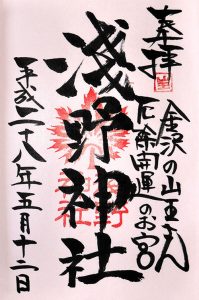 奉拝
金沢の山王さん
厄除開運のお宮
浅野神社
平成二十八年五月十二日